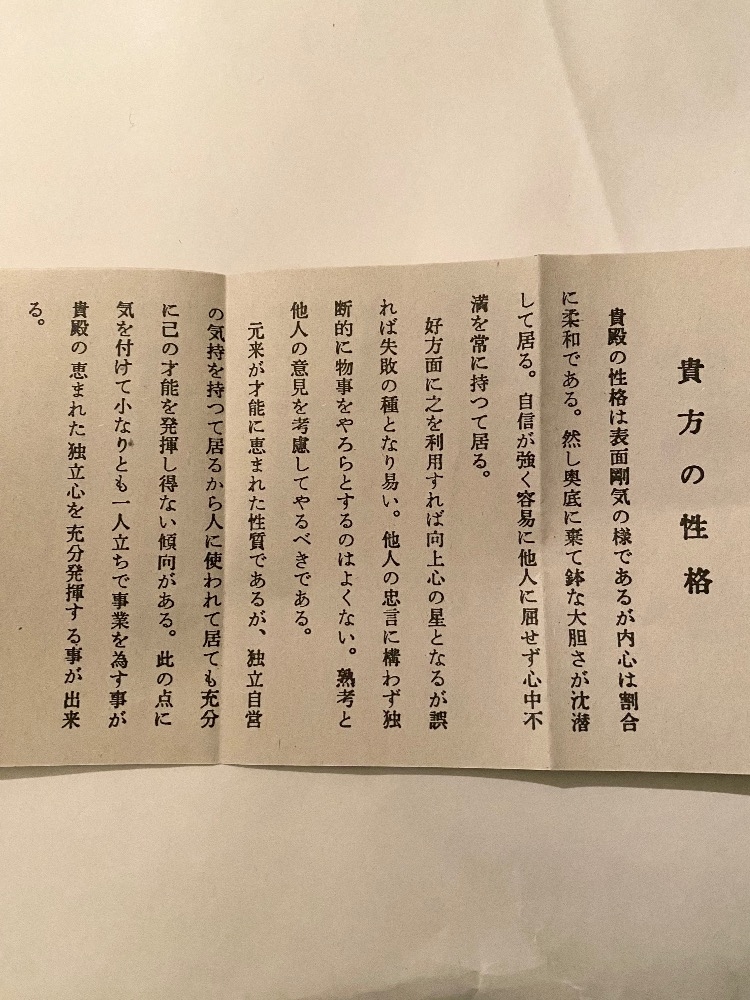 貴方の性格
貴殿の性格は表面剛気の様であるが内心は割合
に柔和である。然し奥底に棄て鉢な大胆さが沈潜
して居る。自信が強く容易に他人に屈せず心中不
満を常に持つて居る。
好方面に之を利用すれば向上心の星となるが誤
れば失敗の種となり易い。他人の忠言に構わず独
断的に物事をやろらとするのはよくない。熟考と
他人の意見を考慮してやるべきである。
元来が才能に恵まれた性質であるが、独立自営
の気持を持つて居るから人に使われて居ても充分
に己の才能を発揮し得ない傾向がある。此の点に
気を付けて小なりとも一人立ちで事業を為す事が
貴殿の恵まれた独立心を充分発揮する事が出来
る。